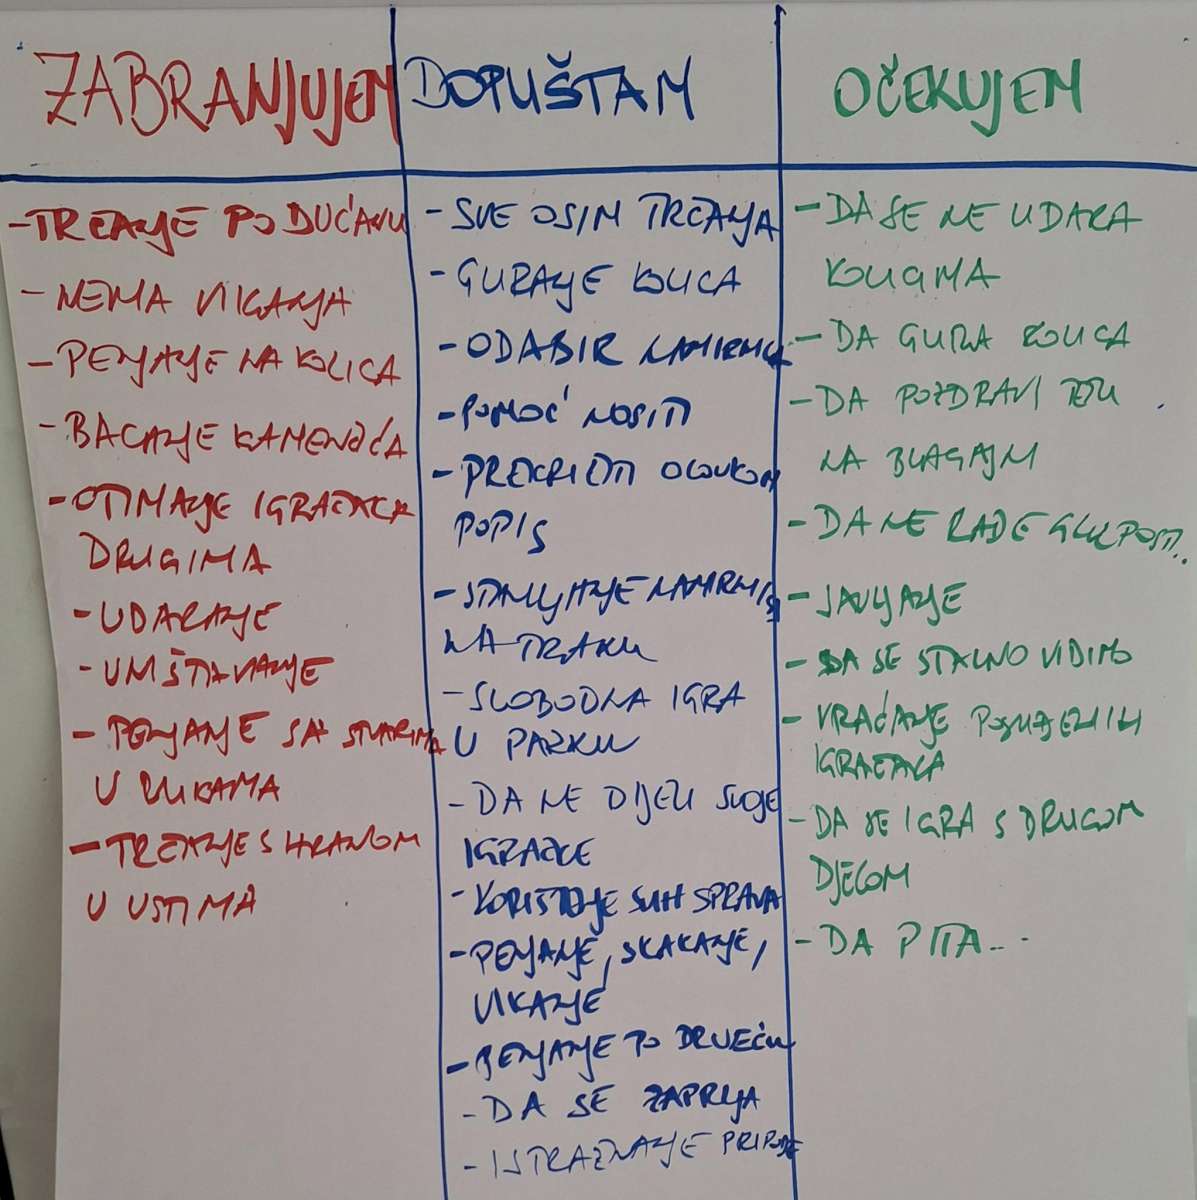 ZABRANJUJEM
- TRČANJE PO DUĆANU
- NEMA VIKANJA
- PENJANJE NA KOLICA
- BACANJE KAMENČIĆA
- OTIMANJE IGRAČAKA
DRUGIMA
- UDARANJE
- UNIŠTAVANJE
- PENJANJE SA STVARIMA
U RUKAMA
- TRČANJE S HRANOM
U USTIMA
DOPUŠTAM
- SVE OSIM TRČANJA
- GURANJE KOLICA
- ODABIR NAMIRNICA
- POMOĆ NOSITI
- PREKRIŽITI OLOVKOM
POPIS
- STAVLJANJE NAMIRNICA
NA TRAKU
- SLOBODNA IGRA
U PARKU
- DA NE DIJELI SVOJE
IGRAČKE
- KORIŠTENJE SVIH SPRAVA
- PENJANJE, SKAKANJE,
VIKANJE
- PENJANJE PO DRVEĆU
- DA SE ZAPRLJA
- ISTRAŽIVANJE PRIRODE
OČEKUJEM
- DA SE NE UDARA
KOLICIMA
- DA GURA KOLICA
- DA POZDRAVI TETU
NA BLAGAJNI
- DA NE RADE GLUPOSTI..
- JAVLJANJE
- DA SE STALNO VIDIMO
- VRAĆANJE POSUĐENIH
IGRAČAKA
- DA SE IGRA S DRUGOM
DJECOM
- DA PITA...